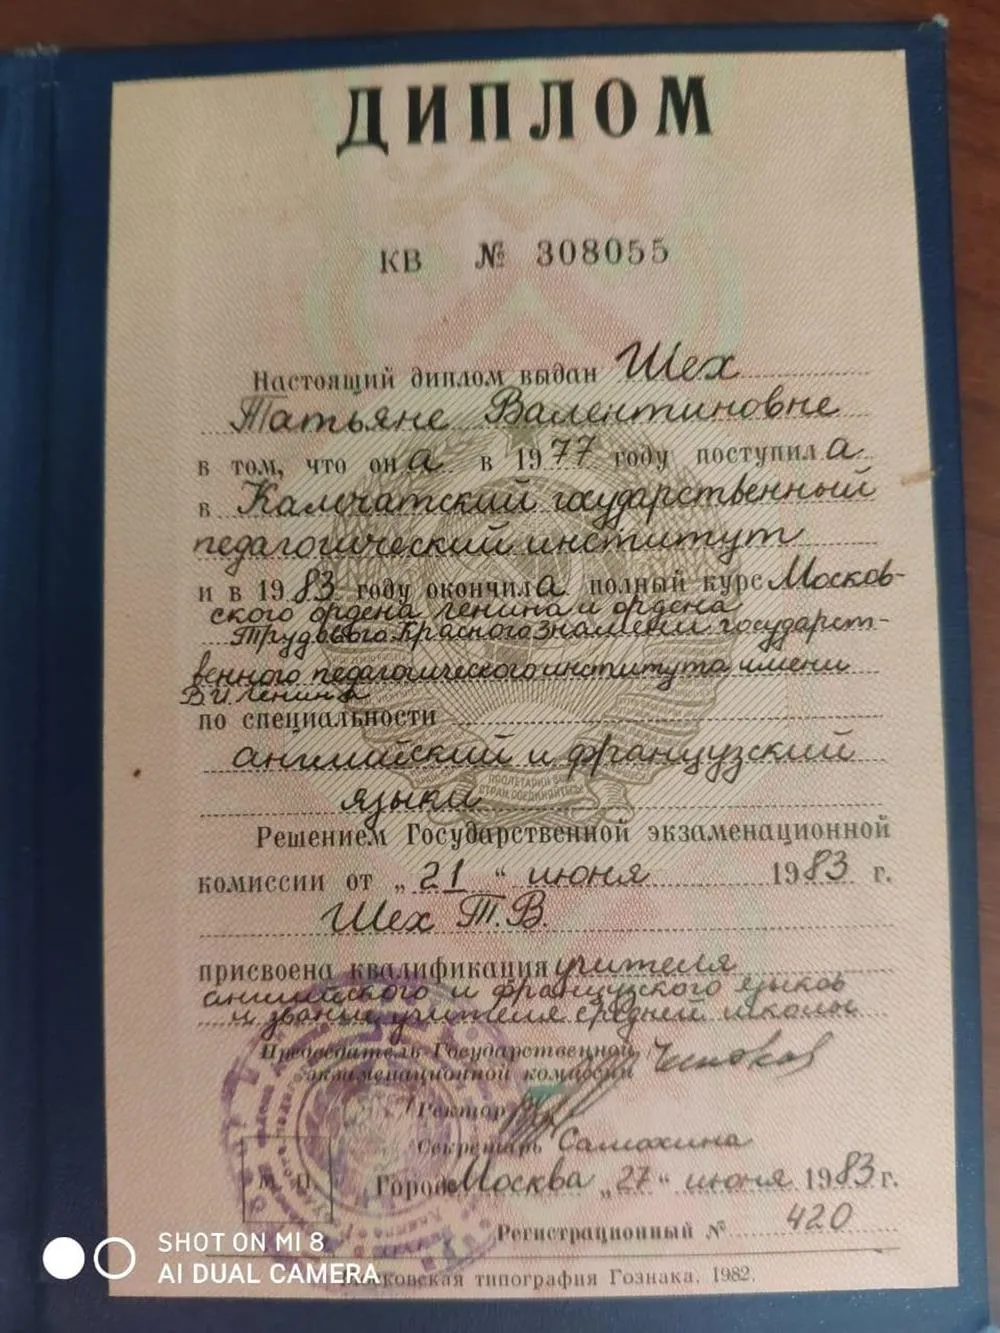 ДИПЛОМ
КВ № 308055
Настоящий диплом выдан Шех
Татьяне Валентиновне
в том, что она в 1977 году поступила
в Камчатский государственный
педагогический институт
и в 1983 году окончила полный курс Москов-
ского ордена Ленина и ордена
Трудового Красного Знамени государст-
венного педагогического института имени
В.И. Ленина
по специальности
английский и французский
языки
Решением Государственной экзаменационной
комиссии от „21“ июня 1983 г.
Шех Т.В.
присвоена квалификация учителя
английского и французского языков
и звание учителя средней школы
Председатель Государственной
экзаменационной комиссии
Ректор
Секретарь Самохина
М. П.
Город Москва „27“ июня 1983 г.
Регистрационный № 420
Московская типография Гознака. 1982.
SHOT ON MI 8
AI DUAL CAMERA